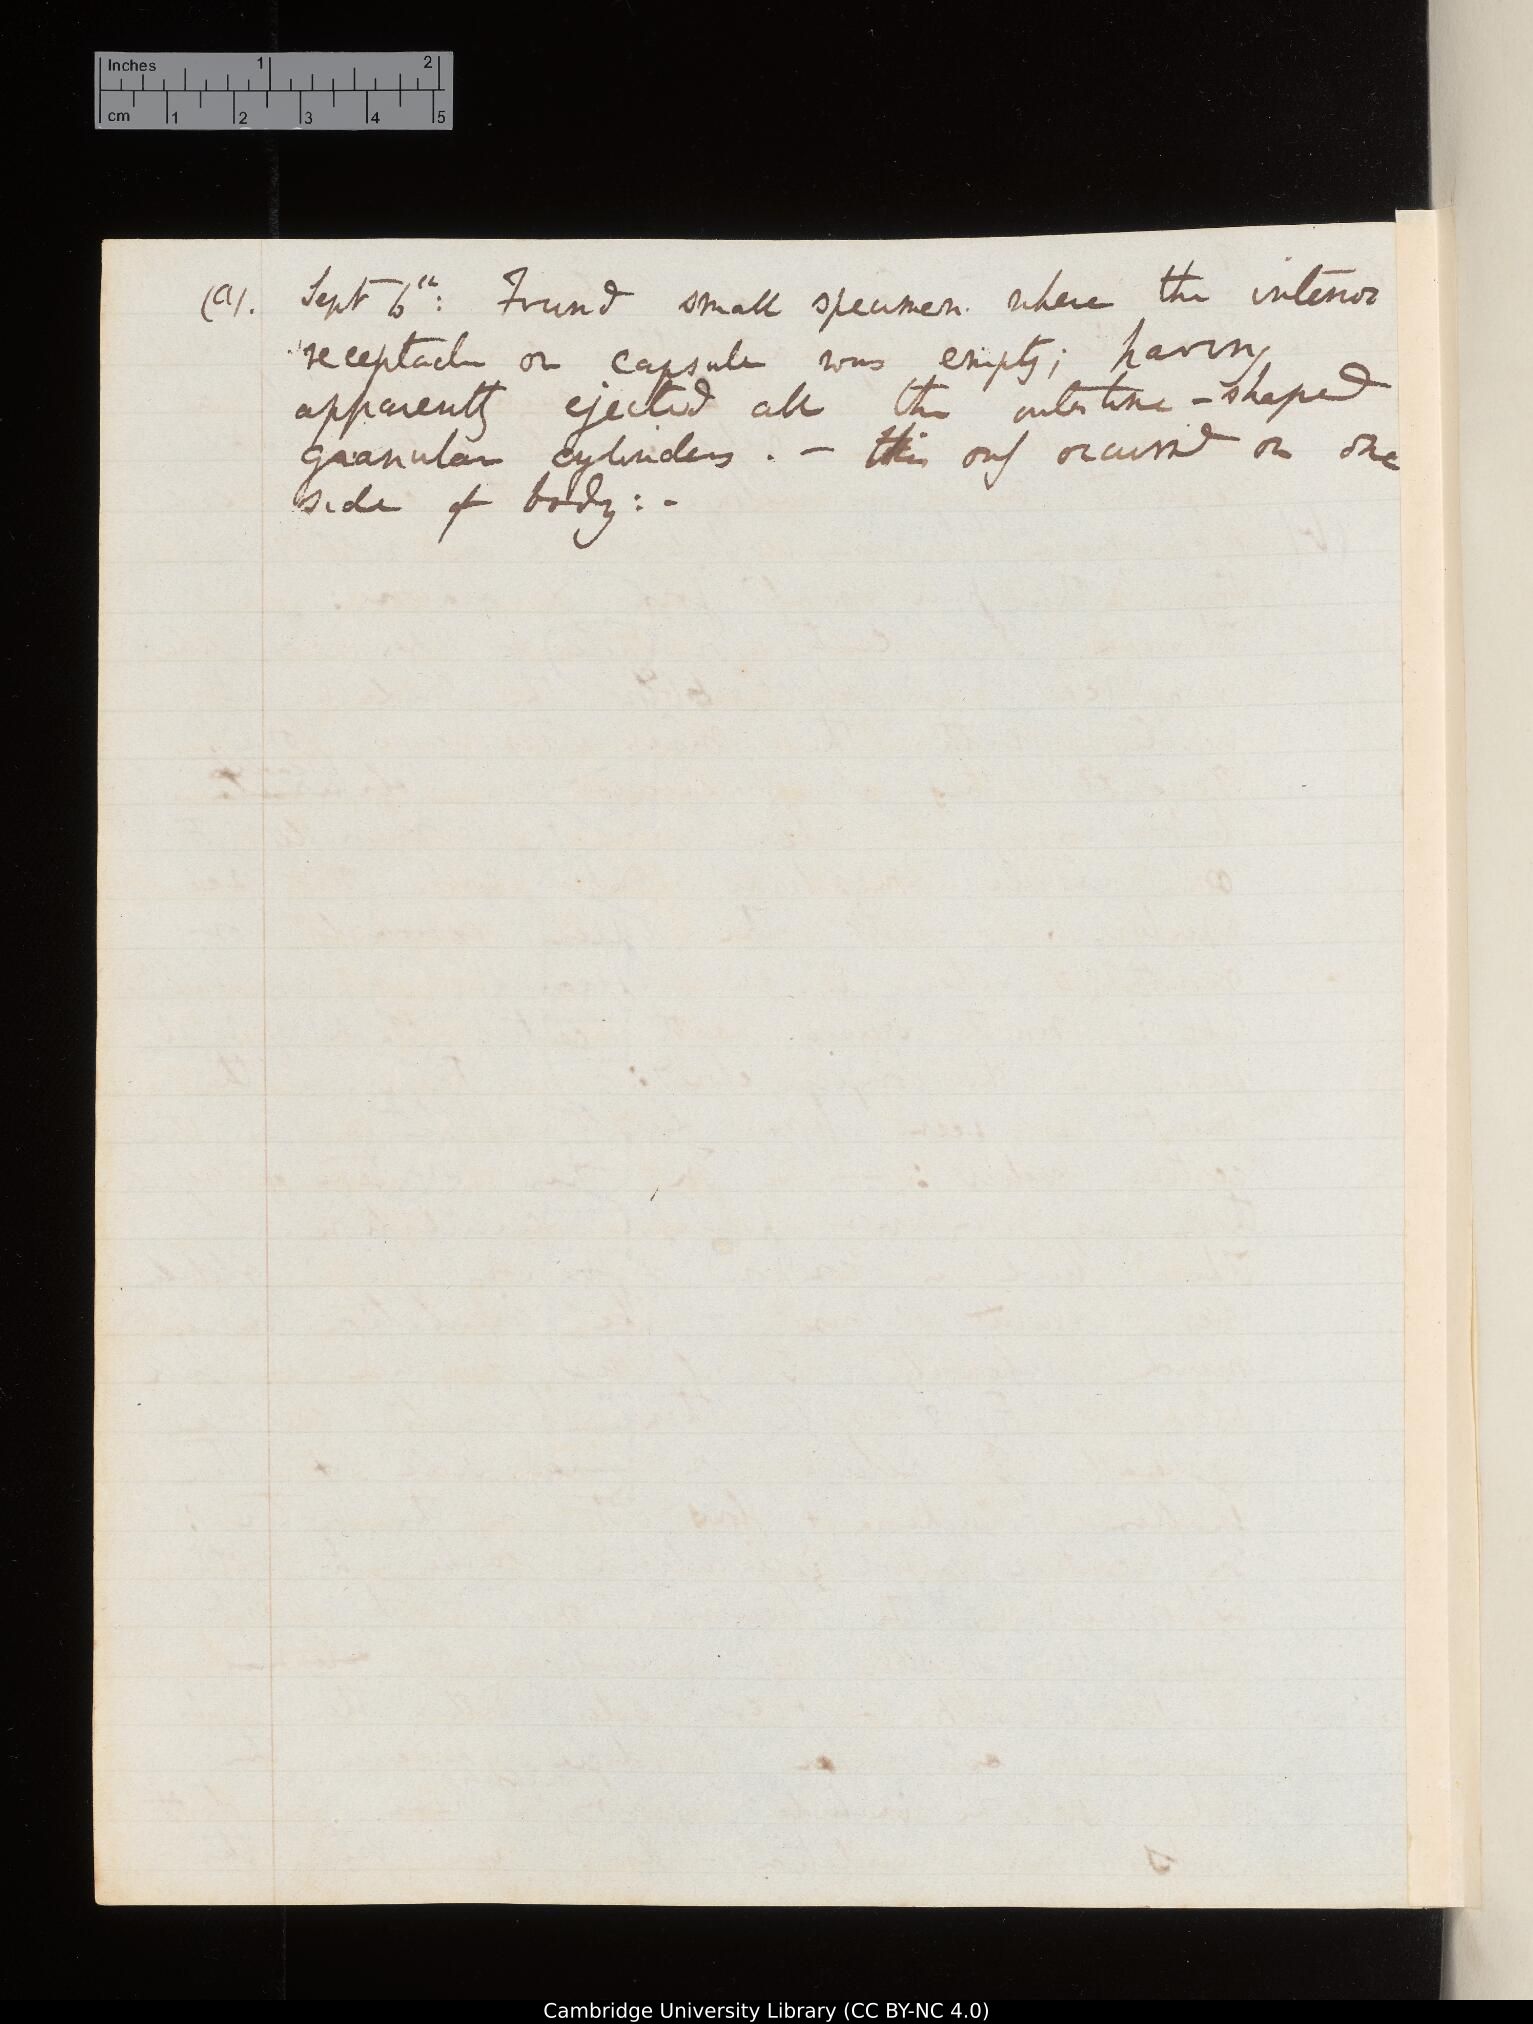 Inches 1 2
cm 1 2 3 4 5
(a). Sept 6th: Found small specimen where the interior
receptacle or capsule was empty; having
apparently ejected all the intestine-shaped
granular cylinders. — this only occurred on one
side of body: -
Cambridge University Library (CC BY-NC 4.0)